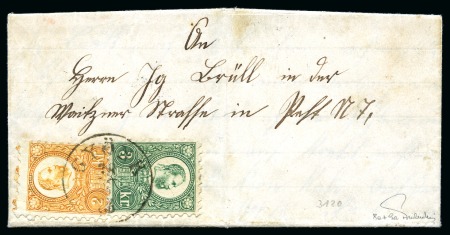 An
Herrn Jg Brüll in der
Waitzner Strasse in Pest N 7,
3 KR
3120